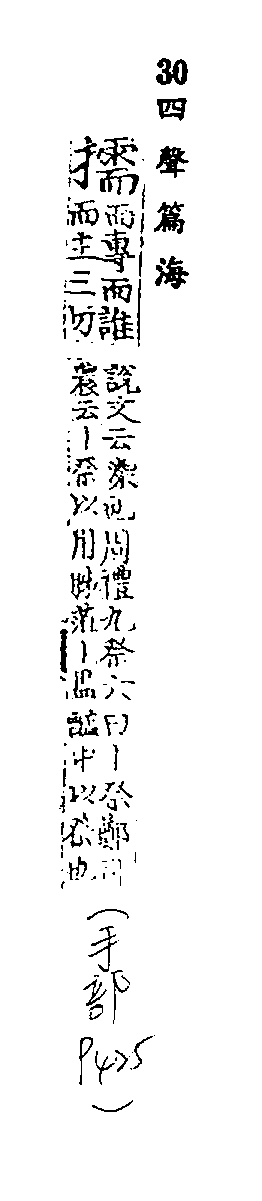 30 四聲篇海
擩 而專而誰
而主三切
説文云染也周禮九祭六曰丨祭鄭司
農云丨祭以肝肺菹丨塩醢中以祭也
(手部 P425)